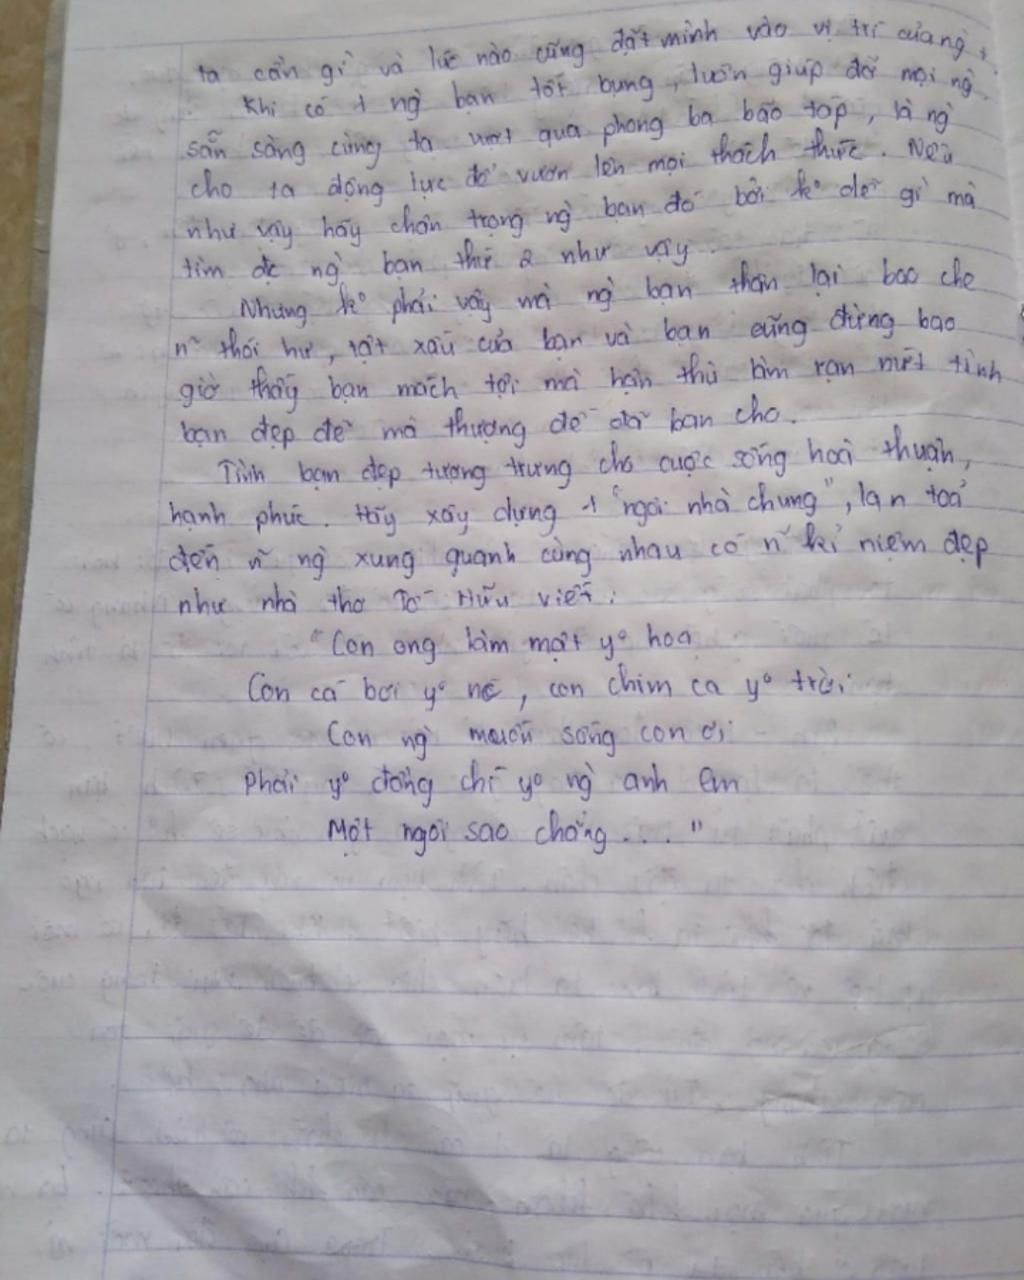 ta cần gì và lúc nào cũng đặt mình vào vị trí của ng̀
Khi có 1 ng̀ bạn tốt bụng, luôn giúp đỡ mọi ng̀
sẵn sàng cùng ta vượt qua phong ba bão táp, là ng̀
cho ta động lực để vươn lên mọi thách thức. Nếu
như vậy hãy chân trọng ng̀ bạn đó bởi k° dễ gì mà
tìm đc ng̀ bạn thứ 2 như vậy.
Nhưng k° phải vậy mà ng̀ bạn thân lại bao che
n~ thói hư, tật xấu của bạn và bạn cũng đừng bao
giờ thấy bạn mách tội mà hận thù làm rạn nứt tình
bạn đẹp đẽ mà thượng đế đã ban cho.
Tình bạn đẹp tượng trưng cho cuộc sống hoà thuận,
hạnh phúc. Hãy xây dựng 1 "ngôi nhà chung", lan toả
đến n~ ng̀ xung quanh cùng nhau có n~ kỉ niệm đẹp
như nhà thơ Tố Hữu viết:
"Con ong làm mật y° hoa
Con cá bơi y° nc, con chim ca y° trời
Con ng̀ muốn sống con ơi
Phải y° đồng chí y° ng̀ anh em
Một ngôi sao chẳng..."